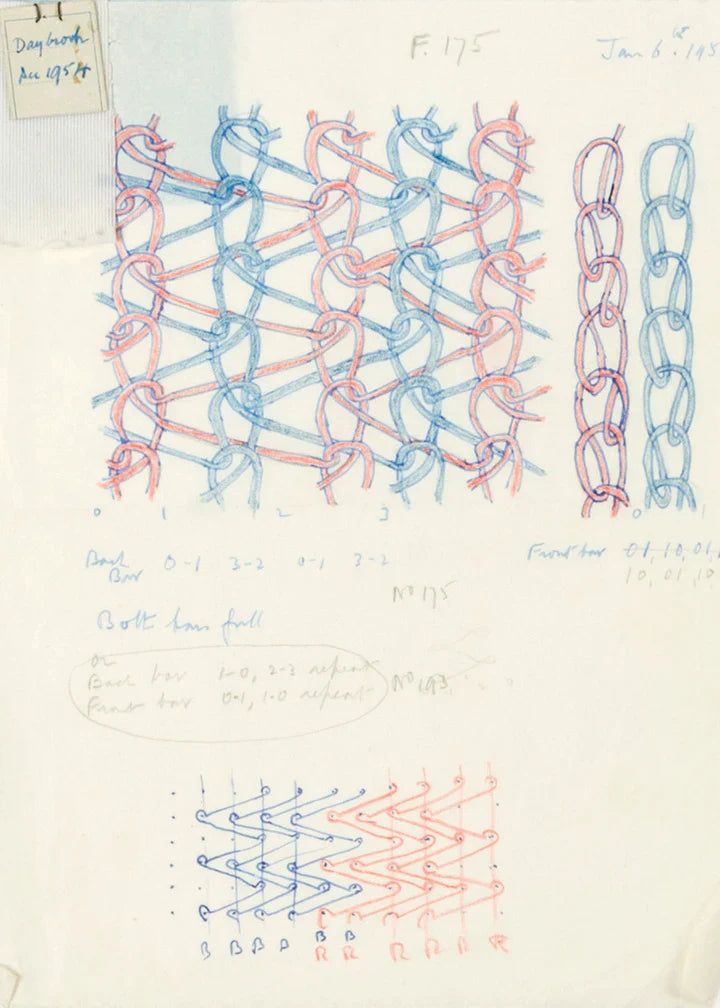 Daybrook
Dec 1954
F. 175
Jan 6
0 1 2 3
0 1
Back Bar 0-1 3-2 0-1 3-2
Front bar 01, 10, 01,
10, 01, 10
No 175
Both bars full
or
Back bar 1-0, 2-3 repeat
Front bar 0-1, 1-0 repeat
No 193
B B B B B B
R R R R R R